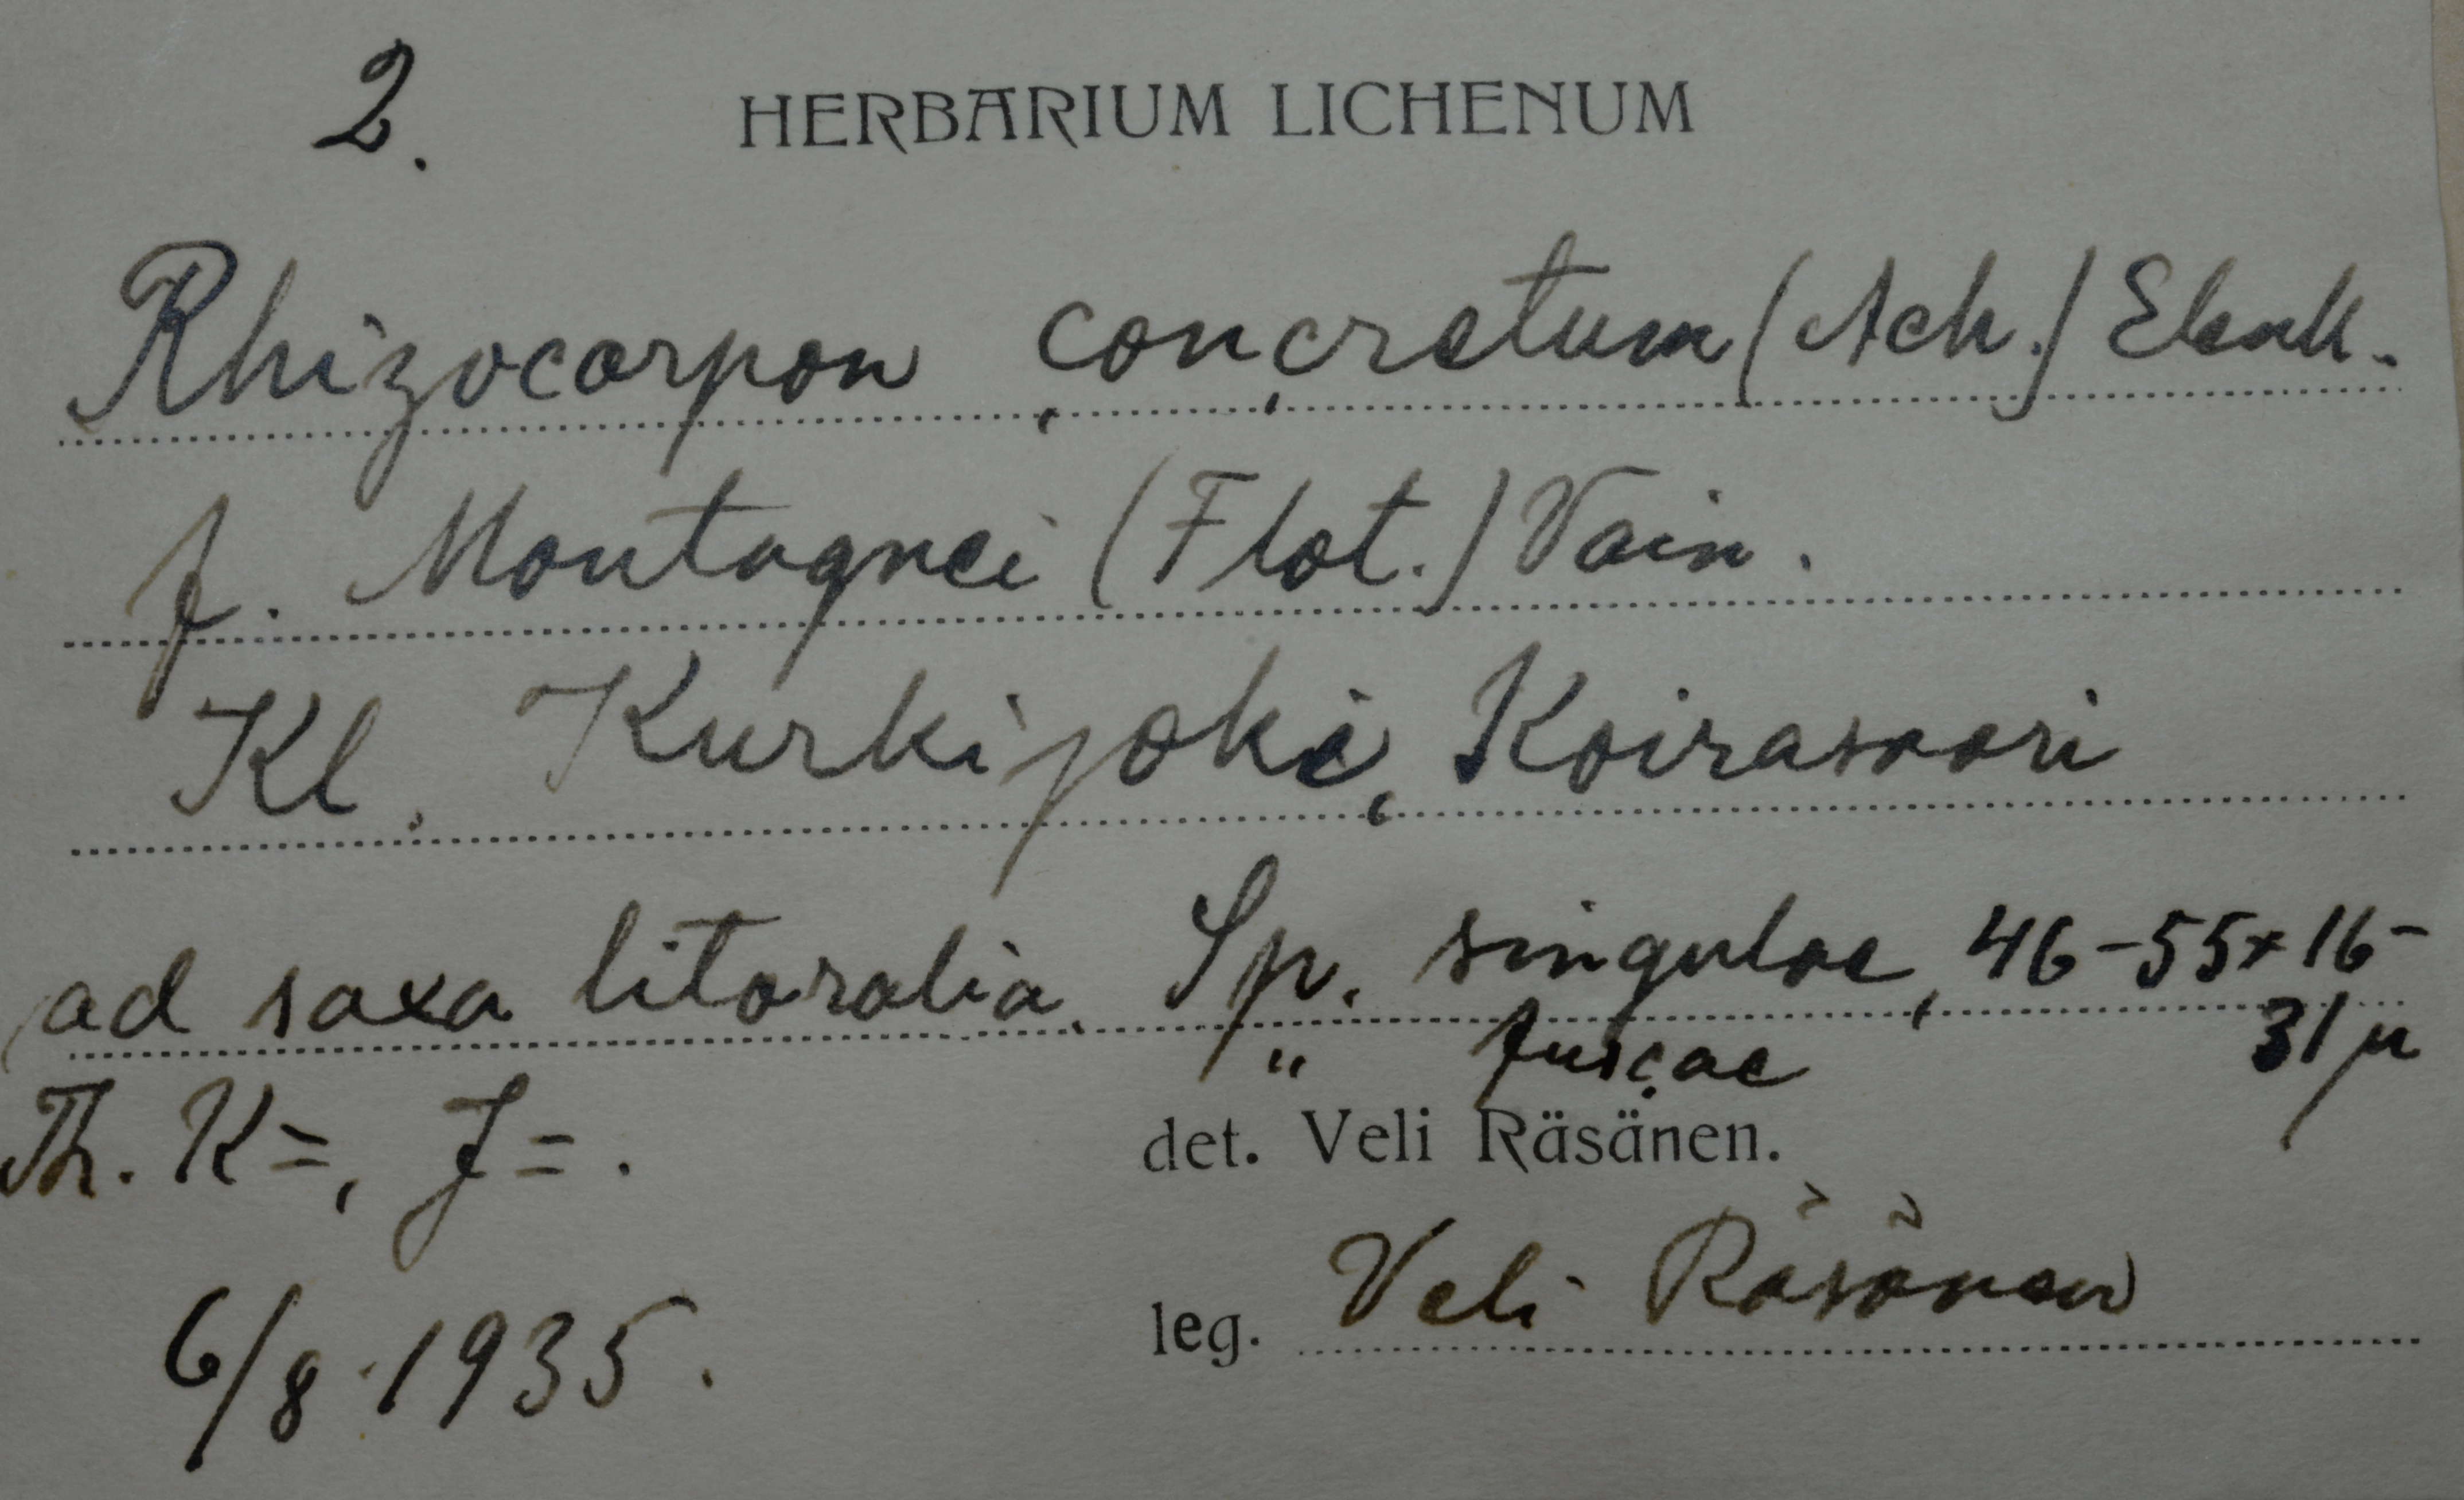 2. HERBARIUM LICHENUM
Rhizocarpon concretum (Ach.) Elenk.
f. Montagnei (Flot.) Vain.
Kl. Kurkijoki, Koirasaari
ad saxa litoralia. Sp. singulae, 46-55×16-
" fuscae 31 µ
Th. K=, J=.
det. Veli Räsänen.
6/8 1935.
leg. Veli Räsänen